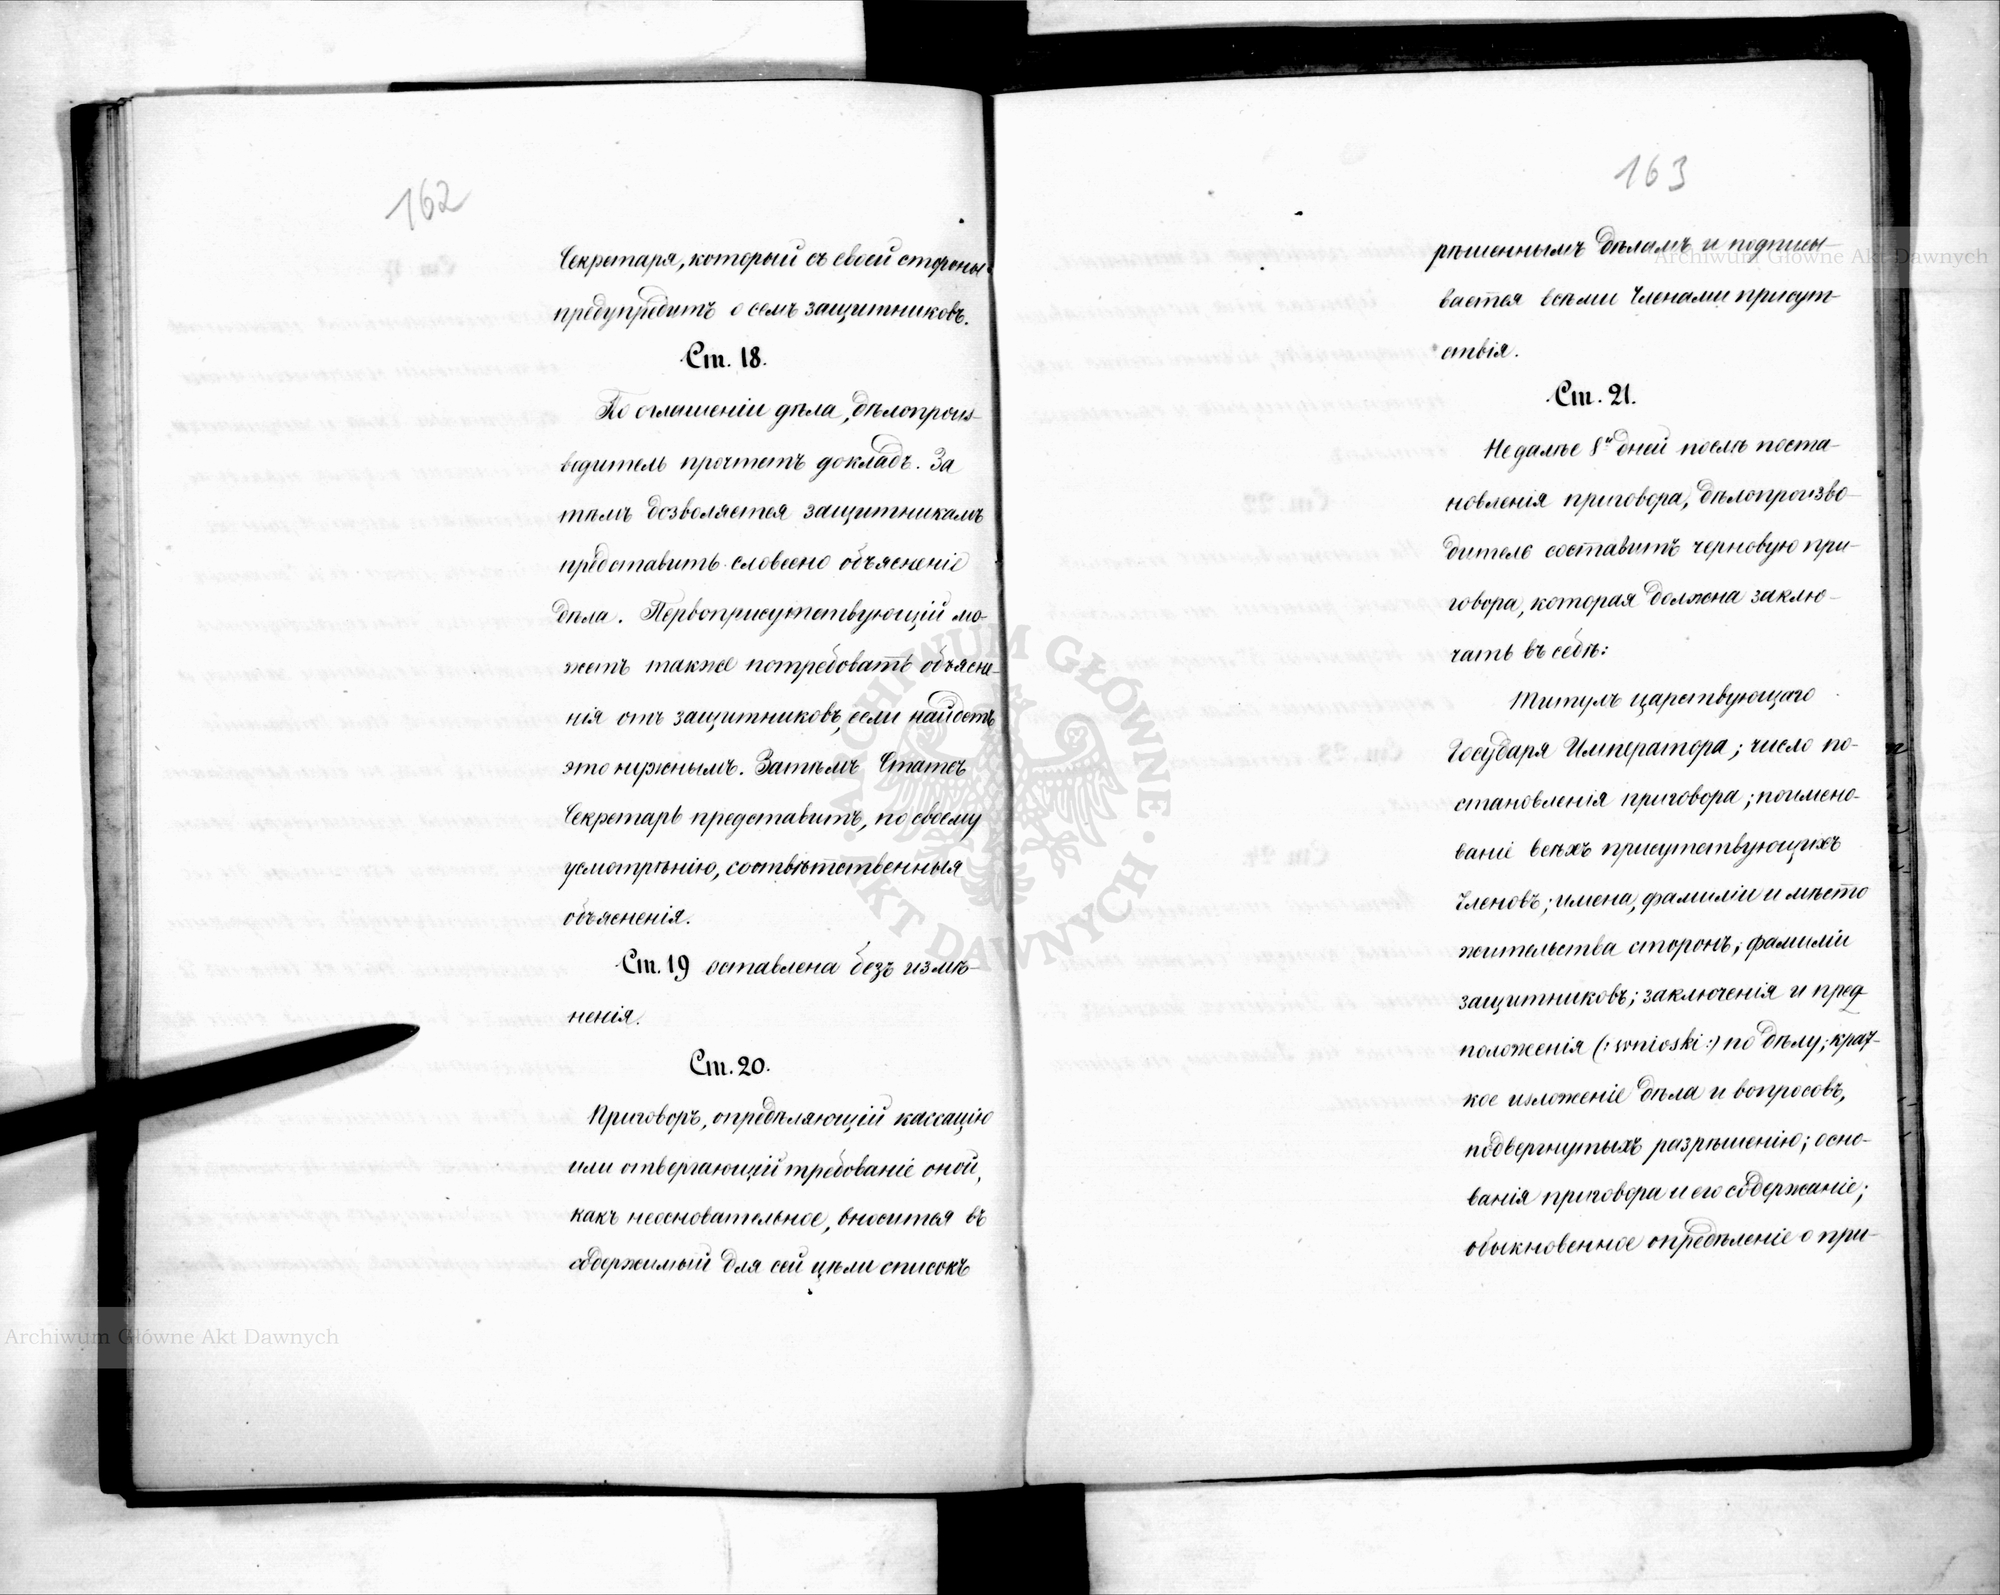 162
Секретаря, который съ своей стороны
предупредитъ о семъ защитниковъ.
Ст. 18.
По оглашеніи дѣла, дѣлопроиз-
водитель прочтетъ докладъ. За
тѣмъ дозволяется защитникамъ
представить словесно объясненіе
дѣла. Первоприсутствующій мо-
жетъ также потребовать объясне-
нія отъ защитниковъ, если найдетъ
это нужнымъ. Затѣмъ Статсъ
Секретарь представитъ, по своему
усмотрѣнію, соотвѣтственныя
объясненія.
Ст. 19 оставлена безъ измѣ-
ненія.
Ст. 20.
Приговоръ, опредѣляющій кассацію
или отвергающій требованіе оной,
какъ неосновательное, вносится въ
содержимый для сей цѣли списокъ
163
рѣшеннымъ дѣламъ и подписы-
вается всѣми Членами присут-
ствія.
Ст. 21.
Не далѣе 8и дней послѣ поста-
новленія приговора, дѣлопроизво-
дитель составитъ черновую при-
говора, которая должна заклю-
чать въ себѣ:
Титулъ царствующаго
Государя Императора; число по-
становленія приговора; поимено-
ваніе всѣхъ присутствующихъ
Членовъ; имена, фамиліи и мѣсто
жительства сторонъ; фамиліи
защитниковъ; заключенія и пред-
положенія (: wnioski :) по дѣлу; крат-
кое изложеніе дѣла и вопросовъ,
подвергнутыхъ разрѣшенію; осно-
ванія приговора и его содержаніе;
обыкновенное опредѣленіе о при-
Archiwum Główne Akt Dawnych
ARCHIWUM GŁÓWNE · AKT DAWNYCH ·
Archiwum Główne Akt Dawnych